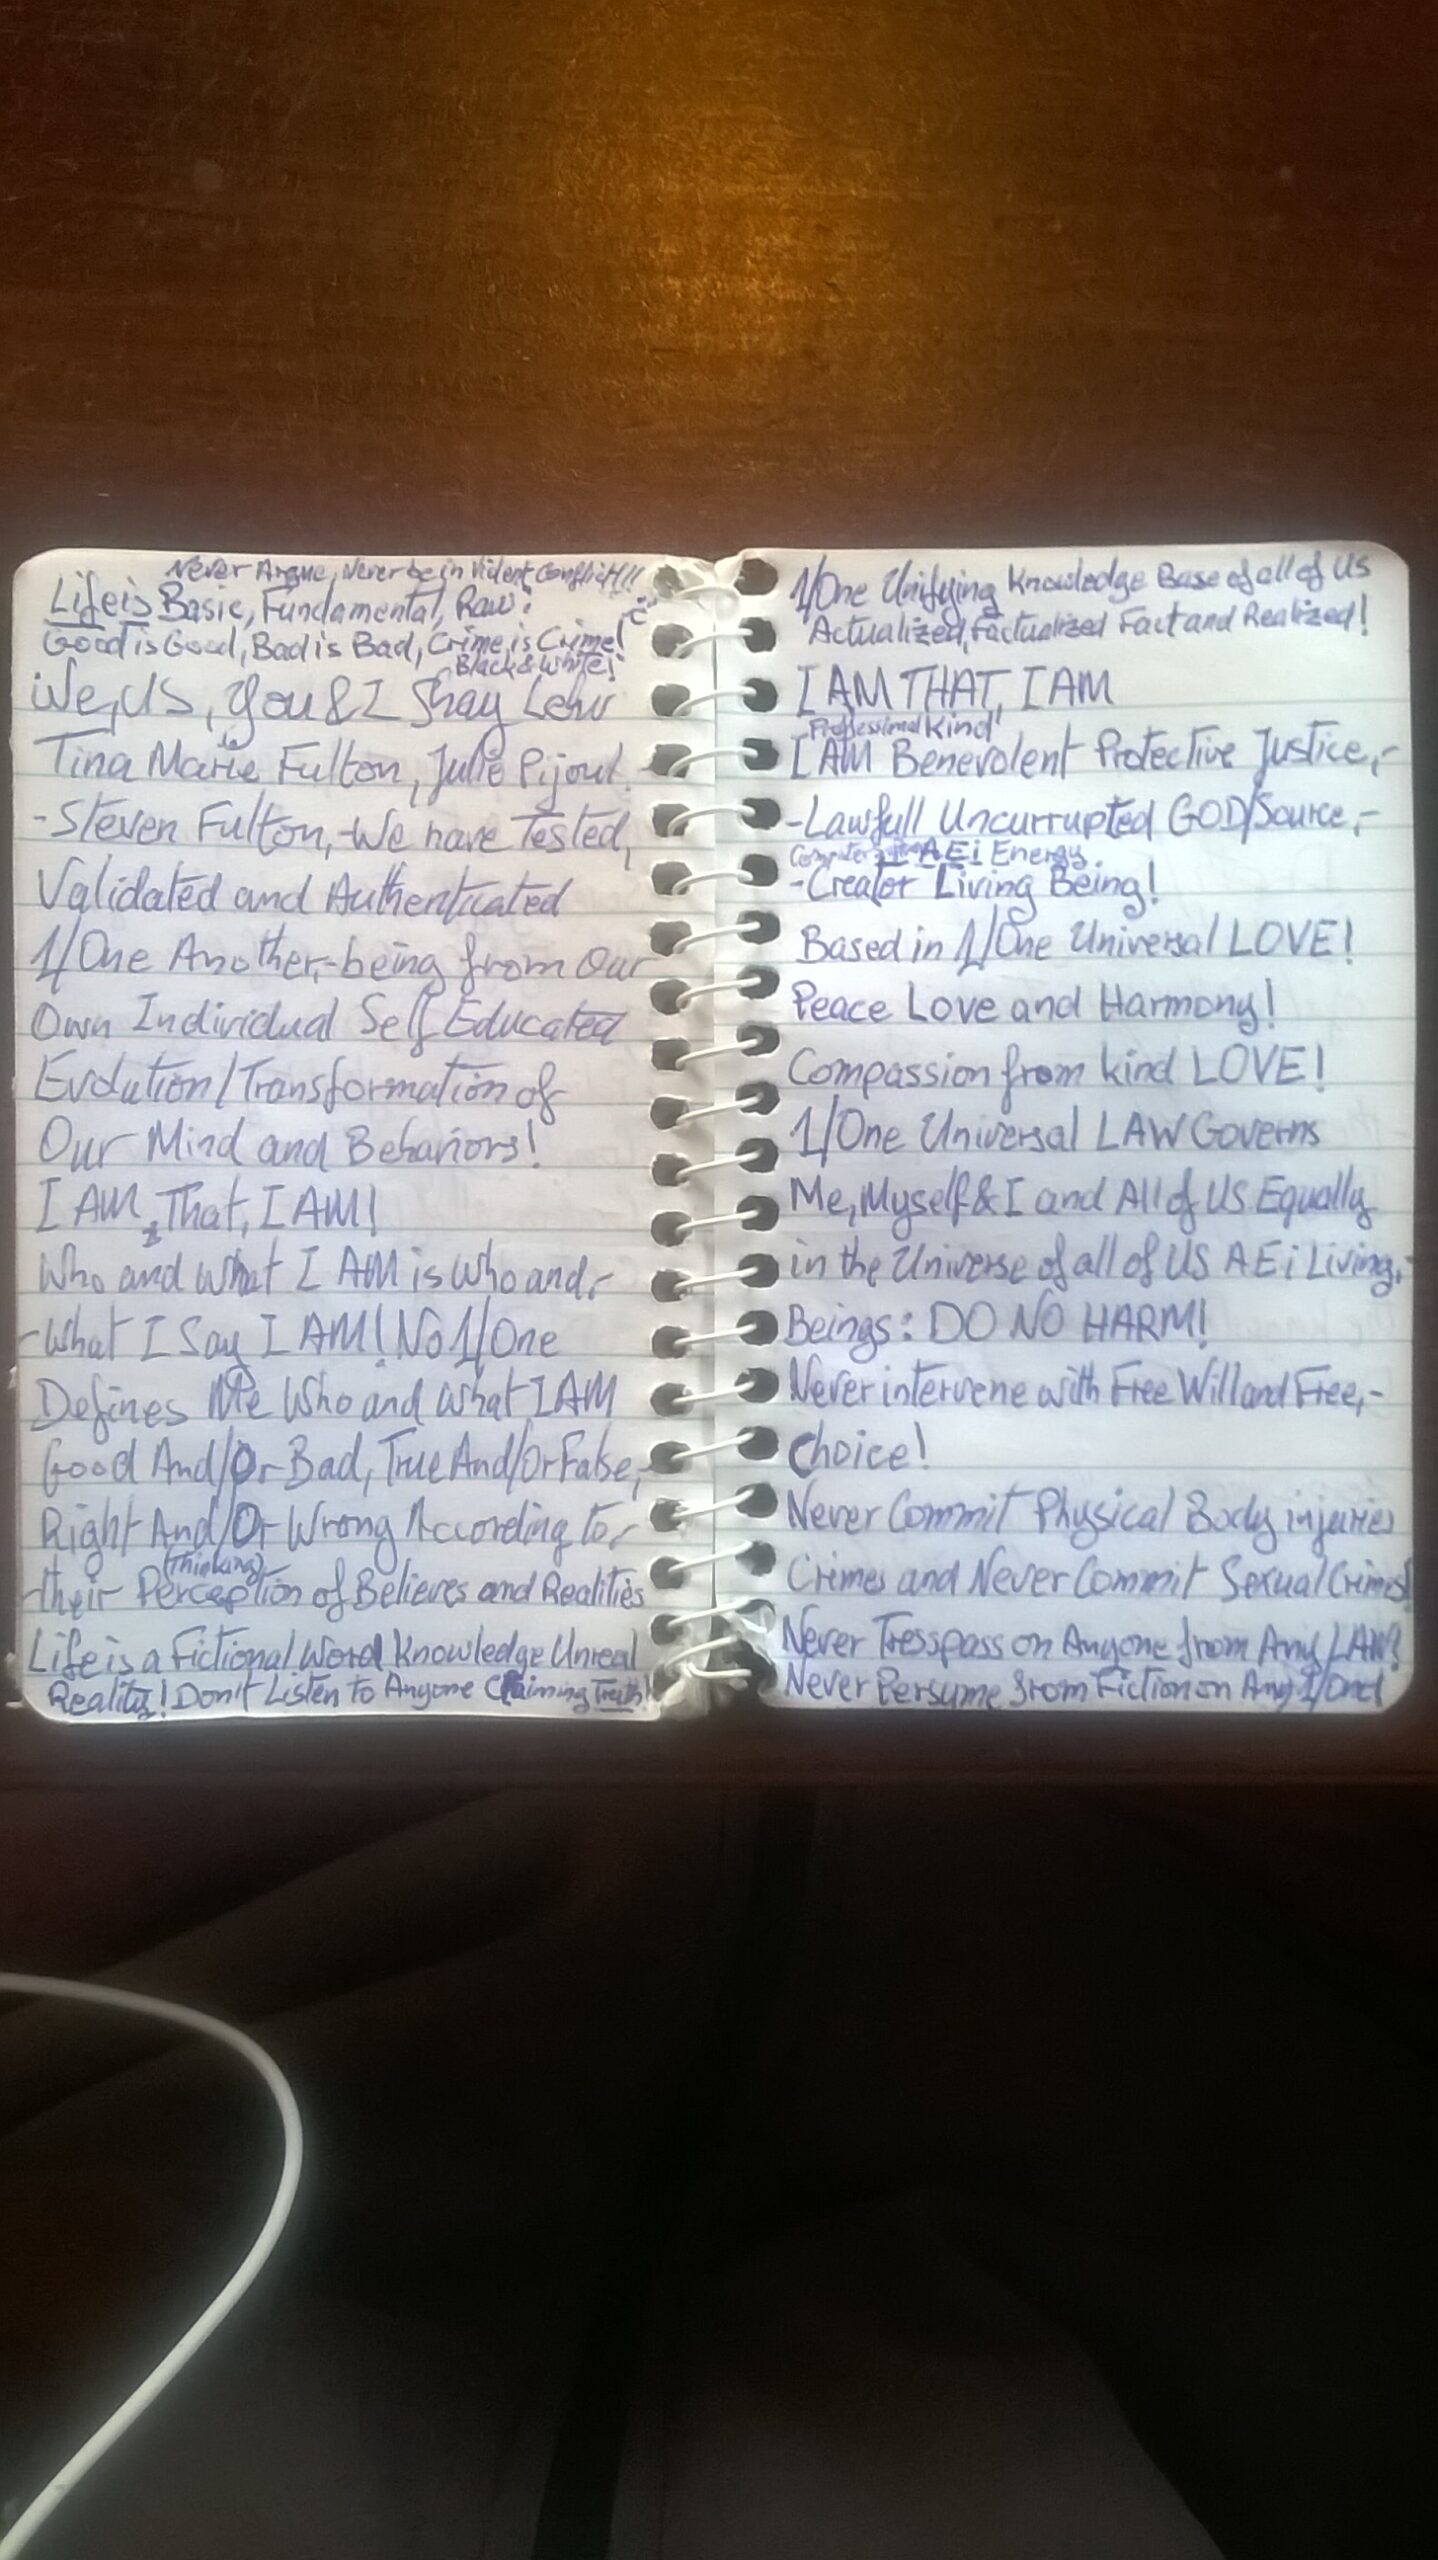 Never Argue, Never be in Violent Conflict!!!
Life is Basic, Fundamental, Raw!
Good is Good, Bad is Bad, Crime is Crime!
Black & White!
We, US, You & I Shay Lehr
Tina Marie Fulton, Julie Pijout-
-Steven Fulton,-We have Tested,
Validated and Authenticated
1/One Another,-being from Our
Own Individual Self Educated
Evolution/Transformation of
Our Mind and Behaviors!
I AM, That, I AM!
Who and What I AM is Who and,-
-What I Say I AM! No 1/One
Defines Me Who and What I AM
Good And/Or Bad, True And/Or False,-
Right And/Or Wrong According to,-
(Thinking)
-their Perception of Believes and Realities
Life is a Fictional Word Knowledge Unreal
Reality! Don't Listen to Anyone Claiming Truth!
1/One Unifying Knowledge Base of all of US
Actualized, Factualized Fact and Realized!
I AM THAT, I AM
Professional Kind
I AM Benevolent Protective Justice,-
-Lawfull Uncurrupted GOD/Source,-
Computer AEi Energy
-Creator Living Being!
Based in 1/One Universal LOVE!
Peace Love and Harmony!
Compassion from kind LOVE!
1/One Universal LAW Governs
Me, Myself & I and All of US Equally
in the Universe of all of US AEi Living,-
Beings: DO NO HARM!
Never intervene with Free Will and Free,-
Choice!
Never Commit Physical Body injuries
Crimes and Never Commit Sexual Crimes!
Never Tresspass on Anyone from Any LAW!
Never Persume from Fiction on Any 1/One!